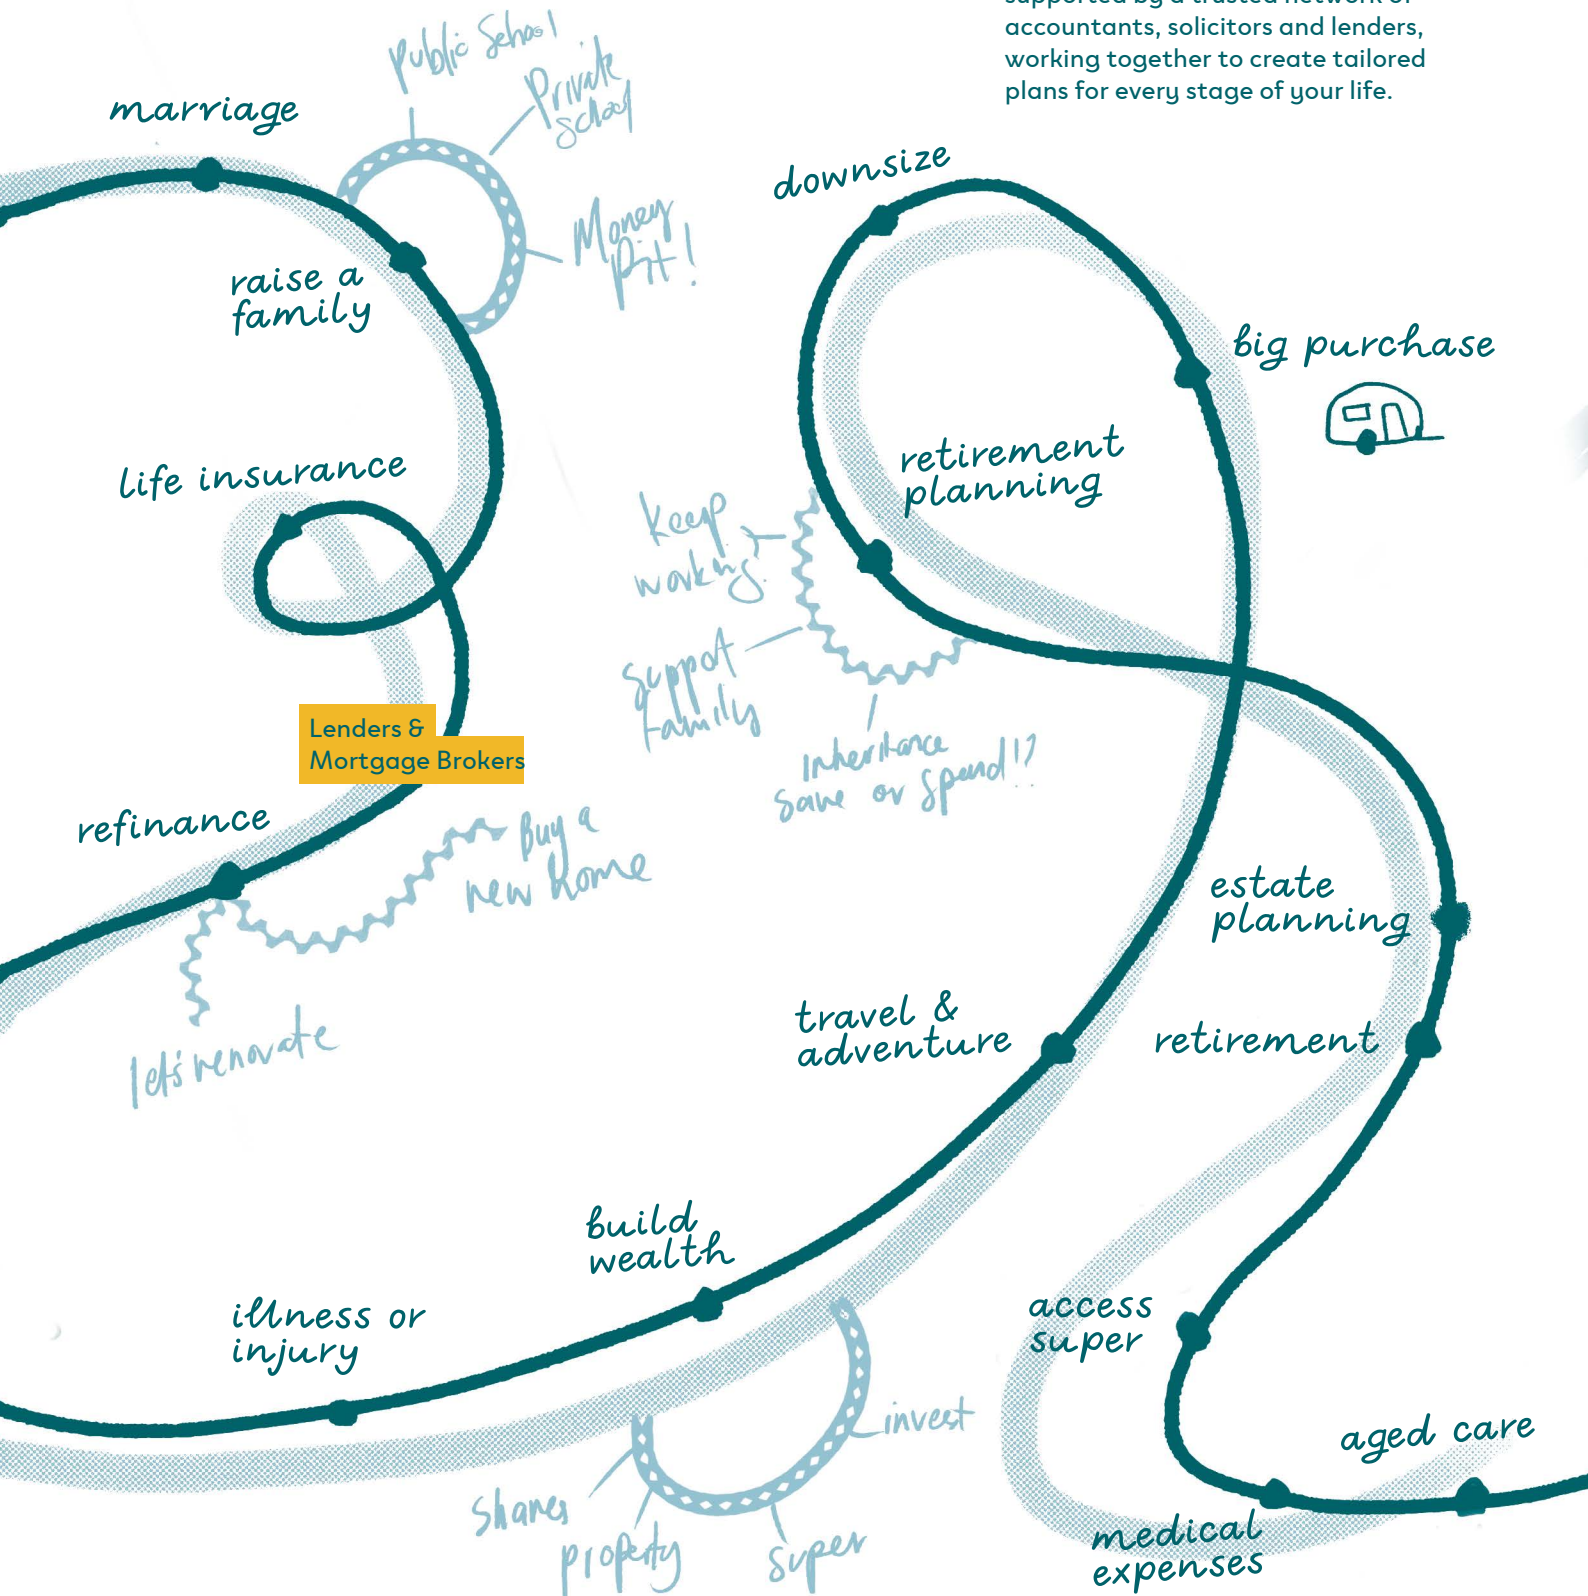 accountants, solicitors and lenders,
working together to create tailored
plans for every stage of your life.
marriage
public School
Private
school
Money
Pit!
raise a
family
downsize
big purchase
life insurance
retirement
planning
keep
working
support
family
inheritance
save or spend!?
Lenders &
Mortgage Brokers
refinance
Buy a
new home
let's renovate
estate
planning
travel &
adventure
retirement
build
wealth
illness or
injury
access
super
invest
shares
property
super
aged care
medical
expenses